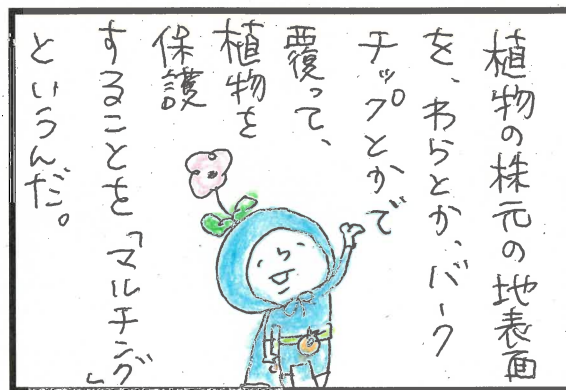 植物の株元の地表面
を、わらとか、バーク
チップとかで
覆って、
植物を
保護
することを「マルチング」
というんだ。